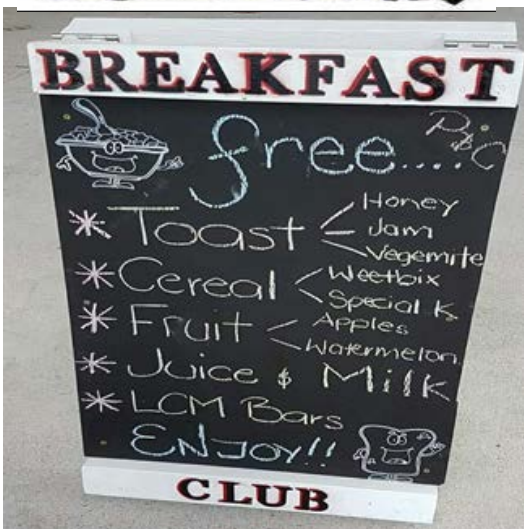 BREAKFAST
free....
P&C
* Toast
Honey
Jam
Vegemite
* Cereal
Weetbix
Special K
* Fruit
Apples
Watermelon
* Juice & Milk
* LCM Bars
ENJOY!!
CLUB